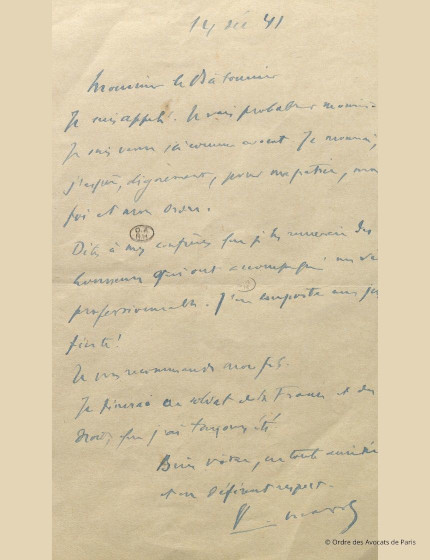 14 déc 41
Monsieur le Bâtonnier
Je suis appelé. Je vais probablement mourir.
Je suis venu ici comme avocat. Je mourrai,
j'espère, dignement, pour ma patrie, ma
foi et mon Ordre.
Dites à mes confrères que je les remercie des
honneurs qui ont accompagné ma vie
professionnelle. J'en emporte une
fierté!
Je vous recommande mon fils.
Je finirai en soldat de la France et du
Droit que j'ai toujours été
Bien vôtre, en toute amitié
et en déférent respect.
© Ordre des Avocats de Paris